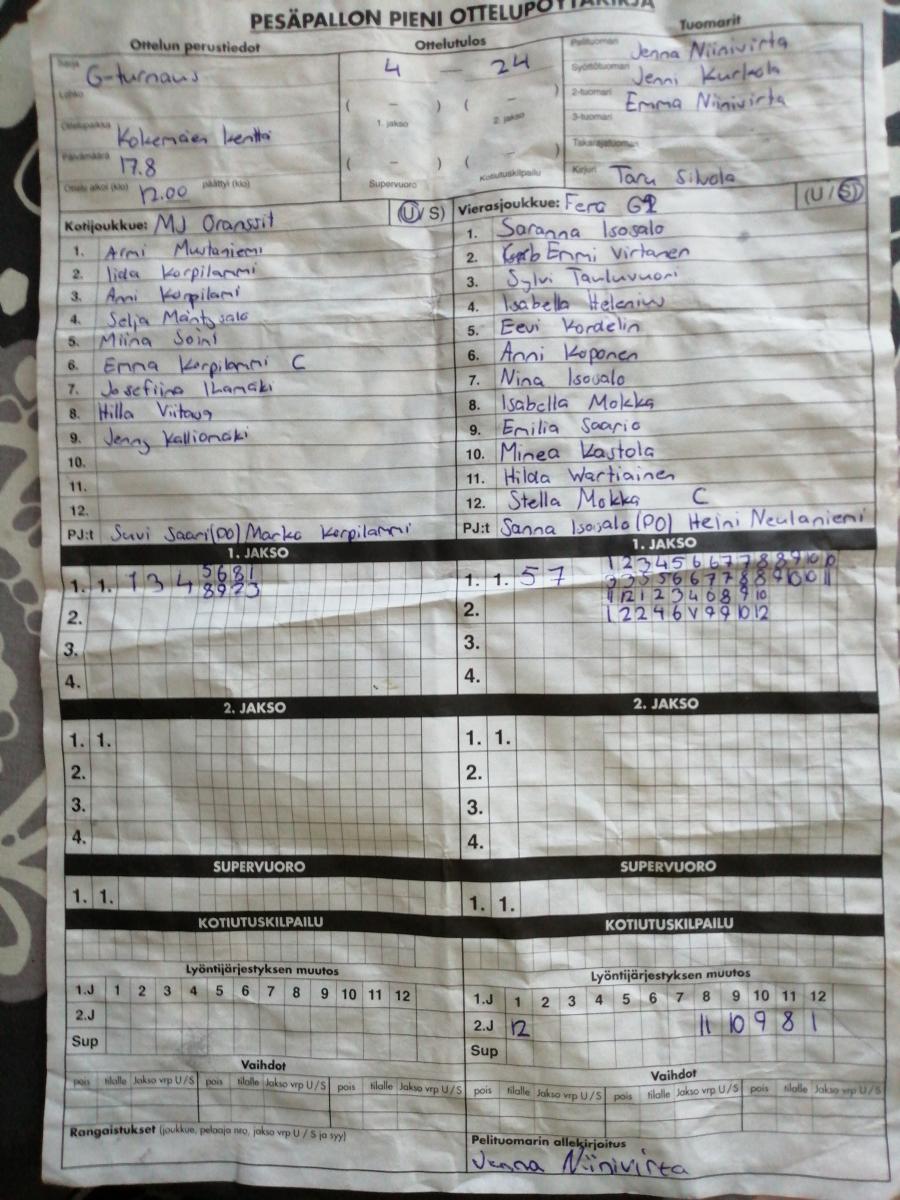 PESÄPALLON PIENI OTTELUPÖYTÄKIRJA
Ottelun perustiedot
Sarja G-turnaus
Lohko
Ottelupaikka Kokemäen kenttä
Päivämäärä 17.8
Ottelu alkoi (klo) 12.00 päättyi (klo)
Ottelutulos
4 — 24
( – ) ( – )
1. jakso 2. jakso
( – ) ( – )
Supervuoro Kotiutuskilpailu
Tuomarit
Pelituomari Jenna Niinivirta
Syöttötuomari Jenni Kurkela
2-tuomari Emma Niinivirta
3-tuomari
Takarajatuomari
Kirjuri Taru Silvola
Kotijoukkue: MJ Oranssit (U/S)
1. Armi Mustaniemi
2. Iida Korpilammi
3. Anni Korpilami
4. Selja Mäntysalo
5. Miina Soini
6. Emma Korpilammi C
7. Josefiina Ihamäki
8. Hilla
9. Jenny Kalliomäki
10.
11.
12.
PJ:t Suvi Saari(PO) Marko Korpilammi
Vierasjoukkue: Fera (U/S)
1. Saranna Isosalo
2. Emmi Virtanen
3. Sylvi Tauluvuori
4. Isabella Helenius
5. Eevi Kordelin
6. Anni Koponen
7. Nina Isosalo
8. Isabella Mokka
9. Emilia Saario
10. Minea Kastola
11. Hilda Wartiainen
12. Stella Mokka C
PJ:t Sanna Isosalo (PO) Heini Neulaniemi
1. JAKSO
1. 1. 1 3 4 5 6 8 1
8 9 2 3
2.
3.
4.
1. JAKSO
1. 1. 5 7 1 2 3 4 5 6 6 7 7 8 8 9 10 10
3 3 5 5 6 6 7 7 8 8 9 10 10 11
11 12 1 2 3 4 6 8 9 10
2. 1 2 2 4 6 V 9 9 10 12
3.
4.
2. JAKSO
1. 1.
2.
3.
4.
2. JAKSO
1. 1.
2.
3.
4.
SUPERVUORO
1. 1.
SUPERVUORO
1. 1.
KOTIUTUSKILPAILU
KOTIUTUSKILPAILU
Lyöntijärjestyksen muutos
1.J 1 2 3 4 5 6 7 8 9 10 11 12
2.J
Sup
Lyöntijärjestyksen muutos
1.J 1 2 3 4 5 6 7 8 9 10 11 12
2.J 12 11 10 9 8 1
Sup
Vaihdot
pois tilalle Jakso vrp U/S pois tilalle Jakso vrp U/S pois tilalle Jakso vrp U/S
Vaihdot
pois tilalle Jakso vrp U/S pois tilalle Jakso vrp U/S pois tilalle Jakso vrp U/S
Rangaistukset (joukkue, pelaaja nro, jakso vrp U / S ja syy)
Pelituomarin allekirjoitus
Jenna Niinivirta